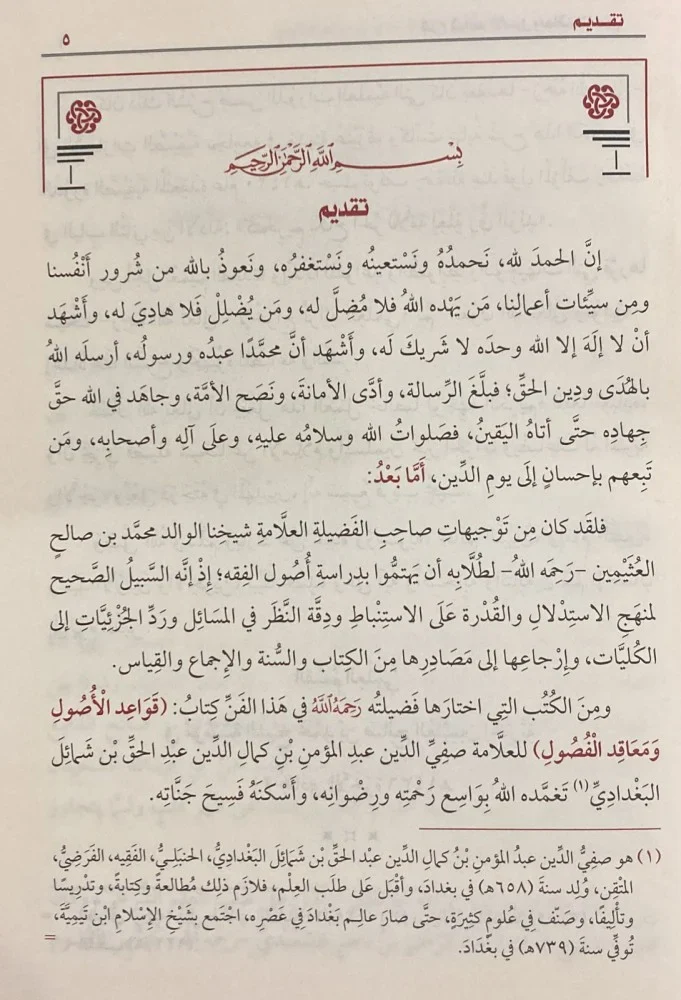 تقديم
٥
بِسْمِ اللَّهِ الرَّحْمَنِ الرَّحِيمِ
تقديم
إنَّ الحمدَ لله، نَحمدُهُ ونَستعينُه ونَستغفرُه، ونَعوذُ بالله من شُرور أَنْفُسنا
ومِن سيِّئات أعمالِنا، مَن يَهْده اللهُ فلا مُضِلَّ له، ومَن يُضْلِلْ فَلا هاديَ له، وأَشْهَد
أنْ لا إلَهَ إلا الله وحدَه لا شَريكَ لَه، وأَشْهَد أنَّ محمَّدًا عبدُه ورسولُه، أرسلَه اللهُ
بالهُدَى ودِينِ الحقِّ؛ فبلَّغَ الرِّسالة، وأدَّى الأمانةَ، ونَصَح الأمَّة، وجاهَد في الله حقَّ
جِهادِه حتَّى أتاهُ اليَقينُ، فصَلواتُ الله وسلامُه عليهِ، وعلَى آلِه وأصحابِه، ومَن
تَبِعهم بإحسانٍ إلَى يومِ الدِّين، أَمَّا بَعْدُ:
فلقَد كان مِن تَوْجيهاتِ صاحبِ الفَضيلةِ العلَّامةِ شيخِنا الوالد محمَّد بن صالحٍ
العُثَيْمِين -رَحِمَه اللهُ- لطُلَّابِه أن يَهتمُّوا بدِراسةِ أُصُول الفِقه؛ إذْ إنَّه السَّبيلُ الصَّحيح
لمنهَجِ الاستِدْلال والقُدْرة عَلَى الاستِنْباطِ ودِقَّة النَّظَر في المسَائِل ورَدِّ الجُزْئِيَّاتِ إلى
الكُليَّات، وإِرْجاعِها إلى مَصَادِرِها مِنَ الكِتاب والسُّنة والإِجماع والقِياس.
ومِنَ الكُتُب التِي اختارَها فَضيلتُه رَحِمَهُ اللَّهُ في هَذا الفَنِّ كِتابُ: (قَوَاعِد الْأُصُولِ
وَمَعَاقِد الْفُصُولِ) للعلَّامة صفِيِّ الدِّين عبدِ المؤمنِ بْن كمالِ الدِّين عبْدِ الحقِّ بْن شَمائِلَ
البَغْدادِيِّ(١) تَغمَّده اللهُ بِوَاسِع رَحْمتِه ورِضْوانِه، وأَسْكنَهُ فَسِيحَ جَنَّاتِه.
(١) هو صفِيُّ الدِّين عبدُ المؤمنِ بْنُ كمالِ الدِّين عبْدِ الحقِّ بْن شَمائِلَ البَغْدادِيُّ، الحنبَليُّ، الفَقِيه، الفَرَضِيُّ،
المتْقِن، وُلِد سنةَ (٦٥٨هـ) في بغدادَ، وأقْبَل عَلَى طلَب العِلْم، فلازَم ذلِك مُطالعةً وكِتابةً، وتدْرِيسًا
وتأْلِيفًا، وصَنّف في عُلومٍ كثِيرَةٍ، حتَّى صارَ عالِم بَغْدادَ فِي عَصْرِه، اجْتمَع بشَيْخِ الإِسْلامِ ابْن تَيْمِيَّةَ،
تُوفِّي سنةَ (٧٣٩هـ) في بغْدَادَ. =